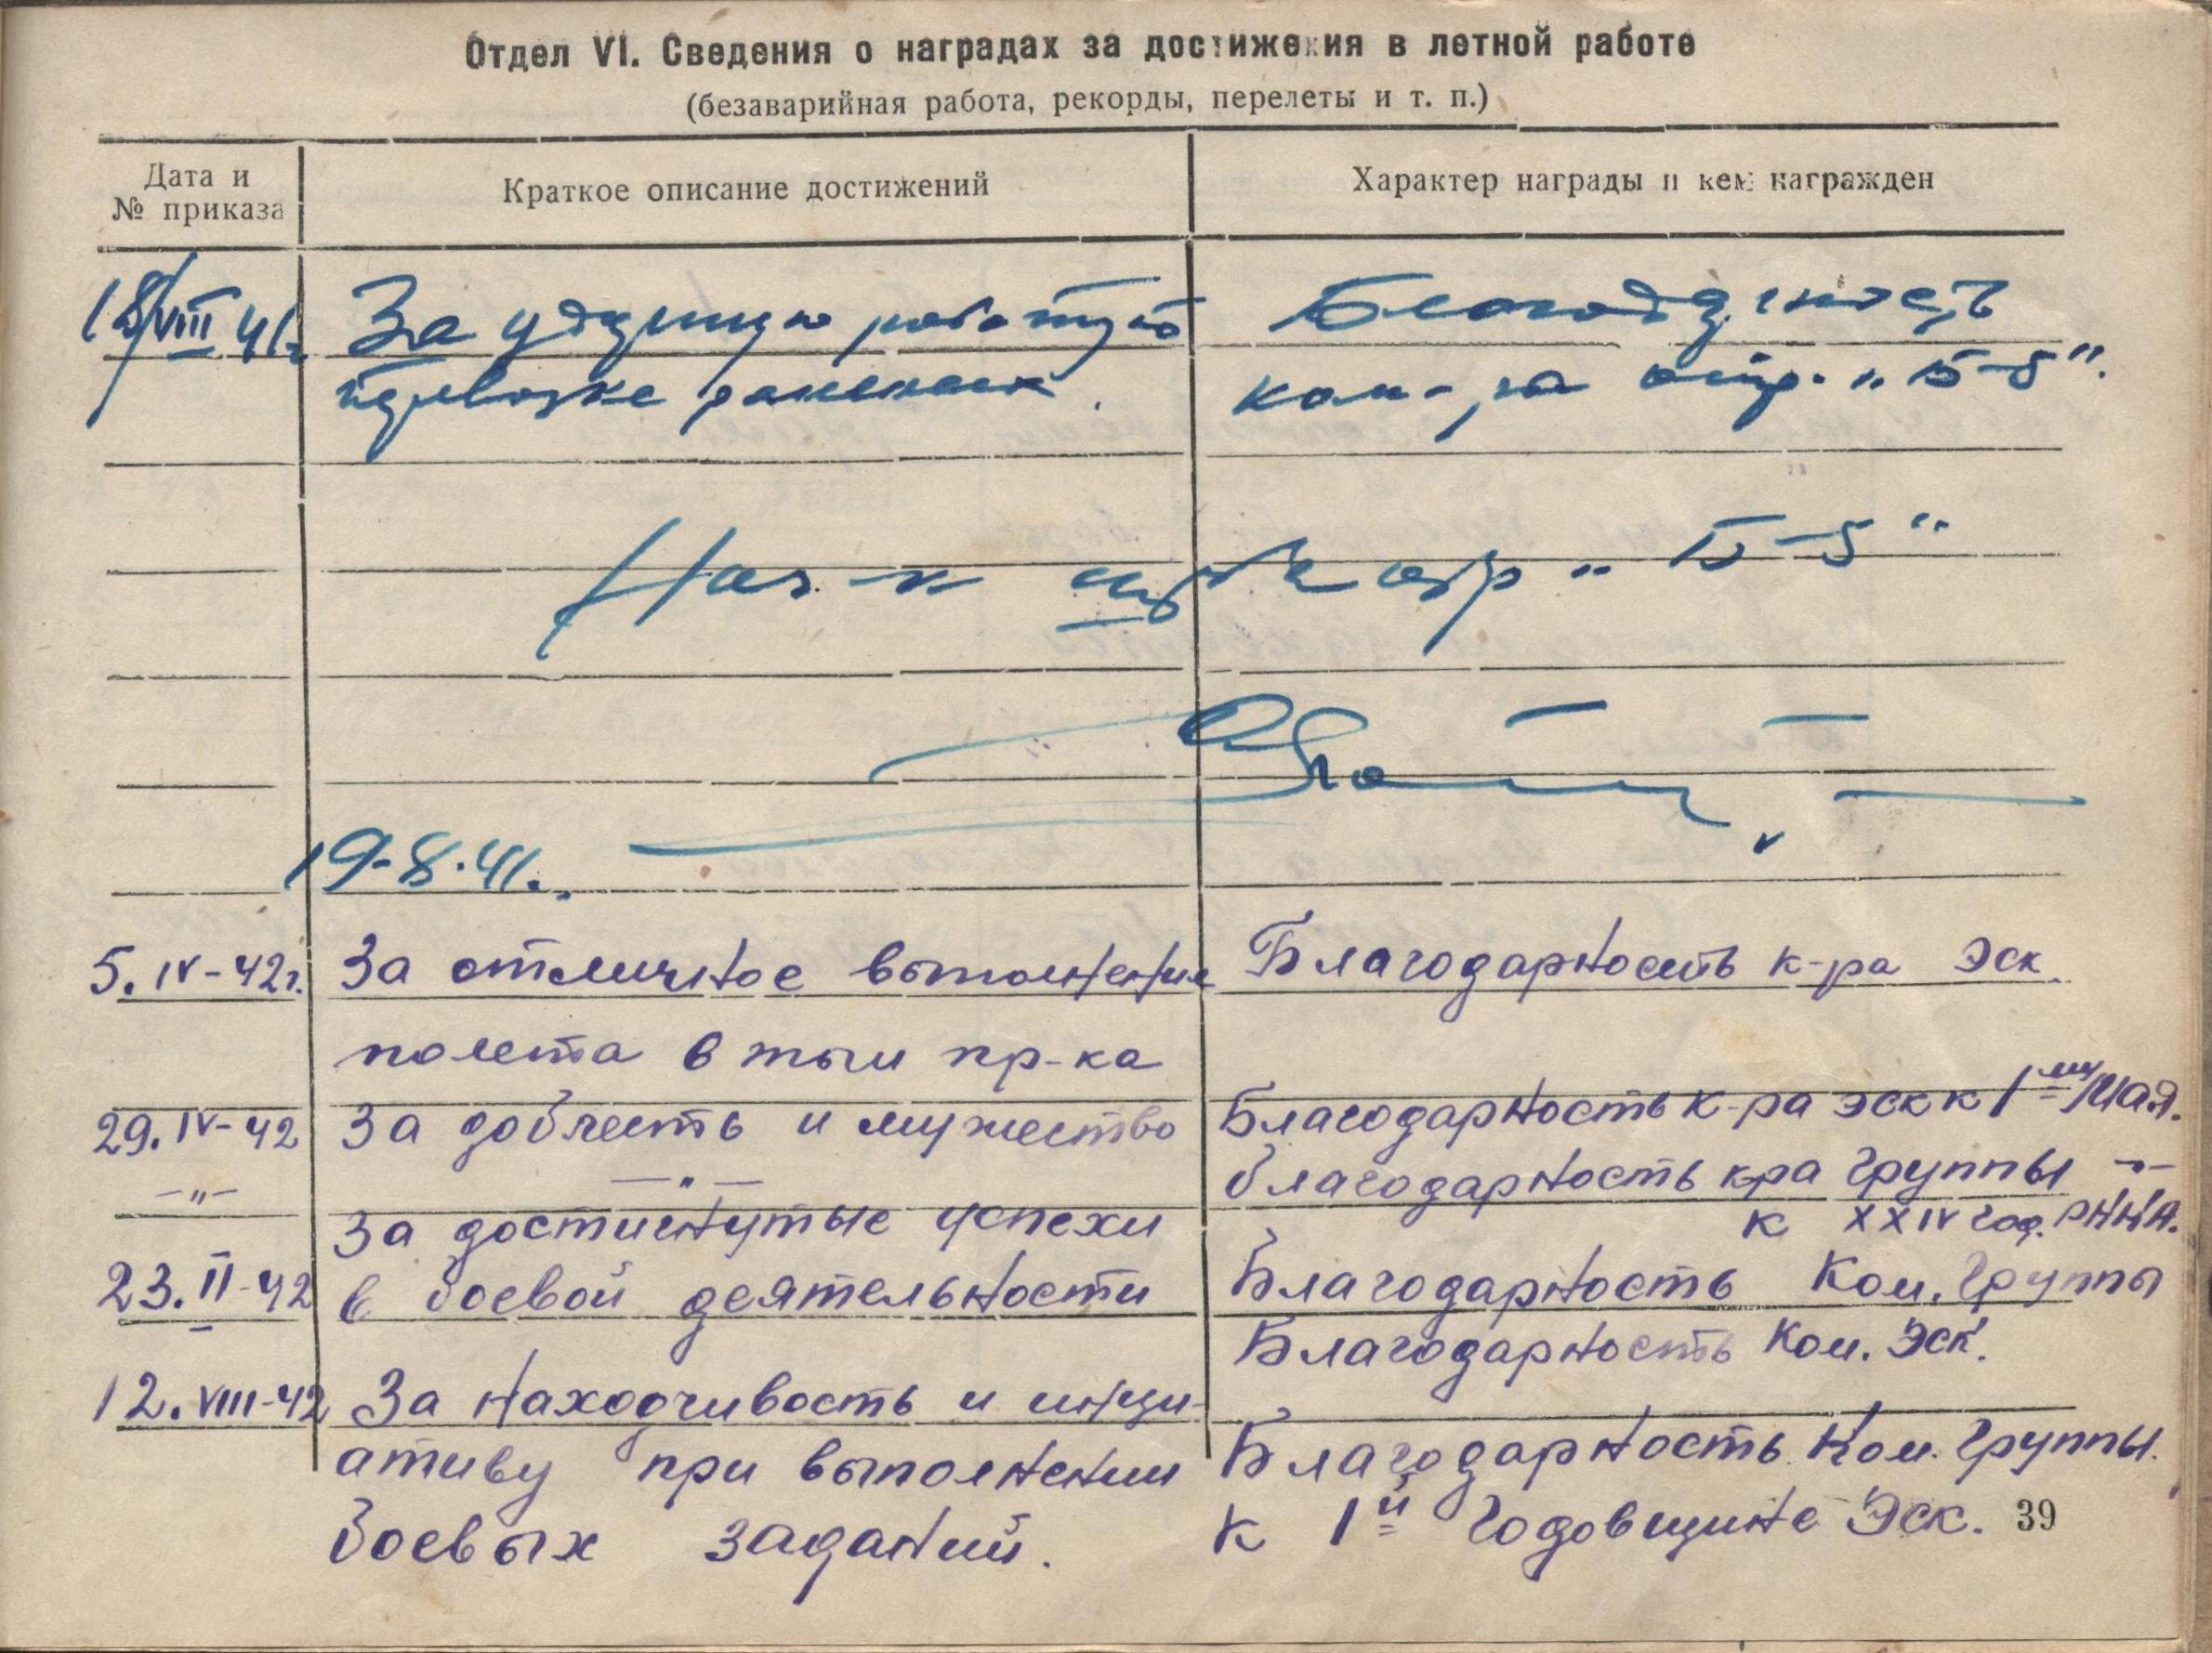 Отдел VI. Сведения о наградах за достижения в летной работе
(безаварийная работа, рекорды, перелеты и т. п.)
Дата и
№ приказа
Краткое описание достижений
Характер награды и кем награжден
18/VIII 41г. За удачную работу по Благодарность
перевозке раненых. ком-ра отр. "Б-5".
Нач-к штаба отр "Б-5"
19-8.41.
5.IV-42г. За отличное выполнение Благодарность к-ра Эск.
полета в тыл пр-ка
29.IV-42 За доблесть и мужество Благодарность к-ра эск к 1му Мая.
-"- -"- благодарность к-ра группы -"-
За достигнутые успехи к XXIV год. РККА.
23.II-42 в боевой деятельности Благодарность Ком. Группы
Благодарность Ком. Эск.
12.VIII-42 За находчивость и иници-
ативу при выполнении Благодарность Ком. Группы.
боевых заданий. к 1й годовщине Эск. 39